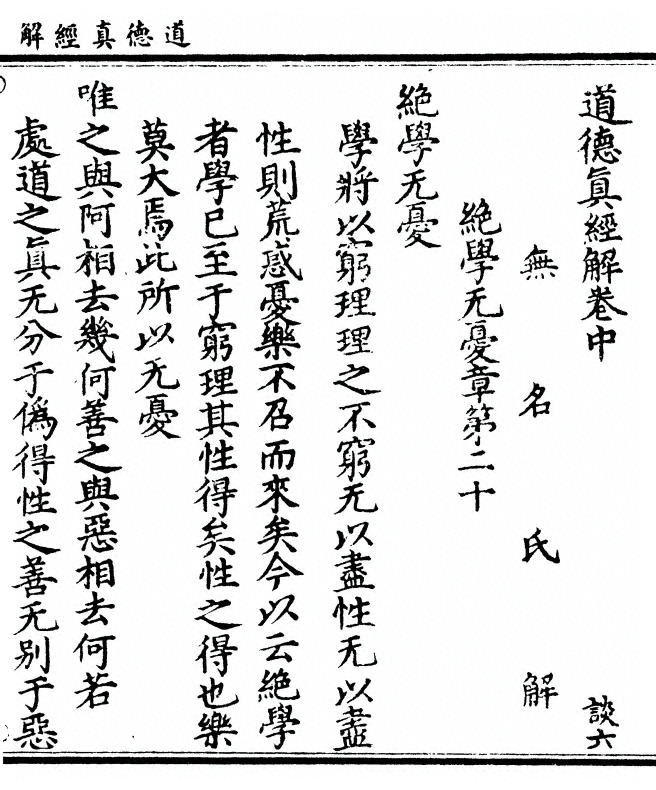 道德真經解
道德眞經解卷中 談六
無名氏解
絶學无憂章第二十
絶學无憂
學將以窮理理之不窮无以盡性无以盡
性則荒惑憂樂不召而來矣今以云絶學
者學已至于窮理其性得矣性之得也樂
莫大焉此所以无憂
唯之與阿相去幾何善之與惡相去何若
處道之眞无分于僞得性之善无別于惡